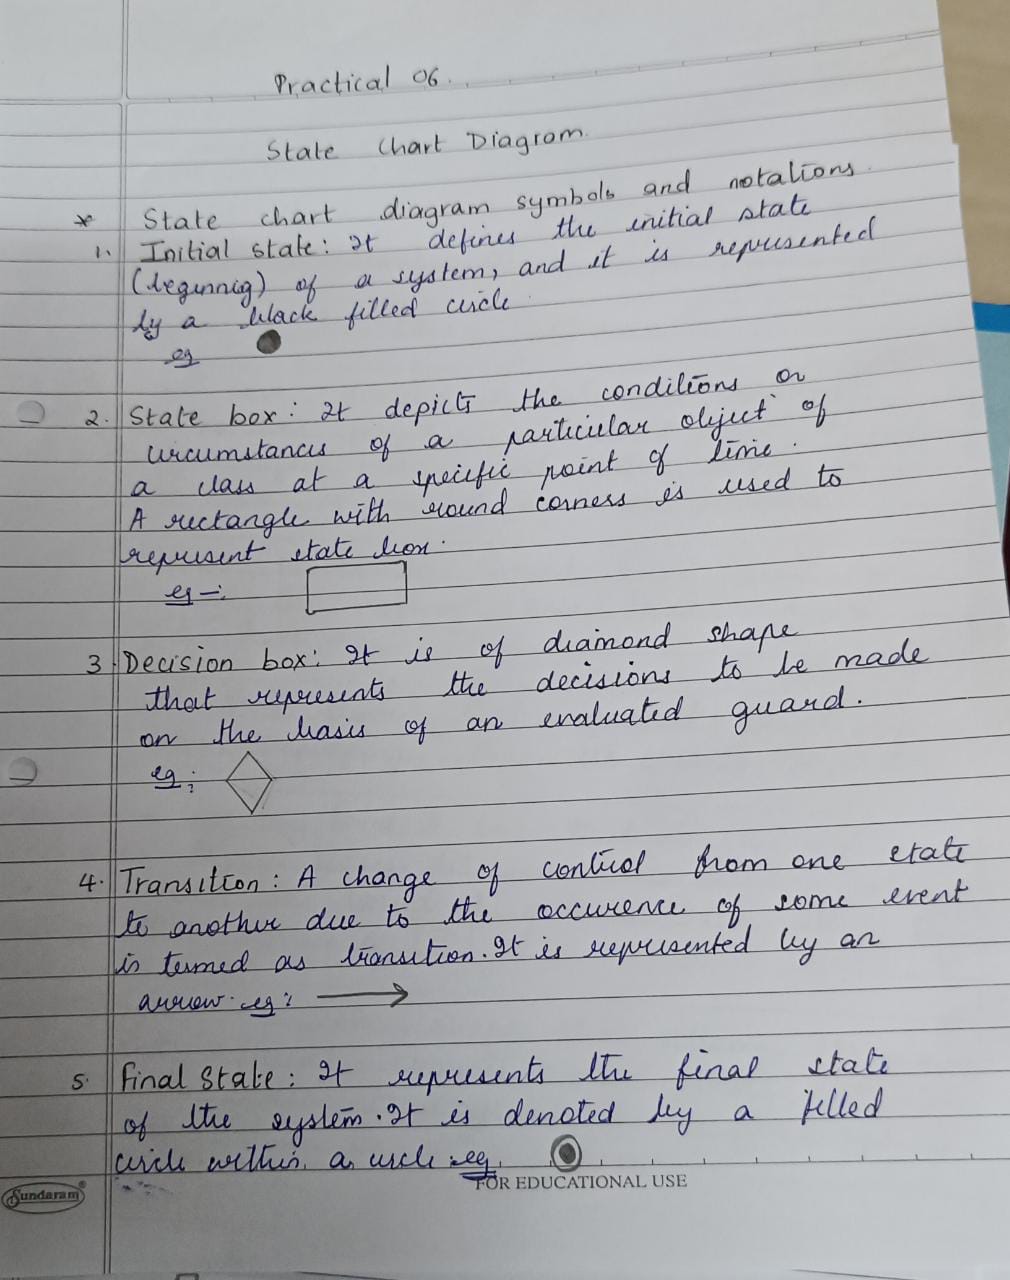 Practical 06.
State Chart Diagram.
* State chart diagram symbols and notations.
1. Initial state: It defines the initial state
(beginnig) of a system, and it is represented
by a black filled circle.
eg
2. State box: It depicts the conditions or
circumstances of a particular object of
a class at a specific point of time.
A rectangle with round corners is used to
represent state box.
eg -:
3 Decision box: It is of diamond shape
that represents the decisions to be made
on the basis of an evaluated guard.
eg:
4. Transition: A change of control from one state
to another due to the occurence of some event
is termed as transition. It is represented by an
arrow. eg:
5. Final State: It represents the final state
of the system. It is denoted by a filled
circle within a circle eg.
Sundaram
FOR EDUCATIONAL USE